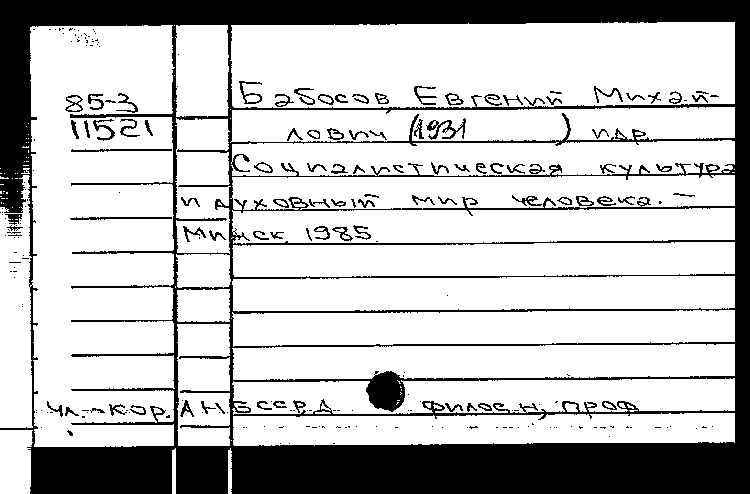 85-3
11521
Бабосов, Евгений Михай-
лович (1931 ) и др.
Социалистическая культура
и духовный мир человека. —
Минск, 1985.
Чл.-кор. АН БССР, Д филос. н., проф